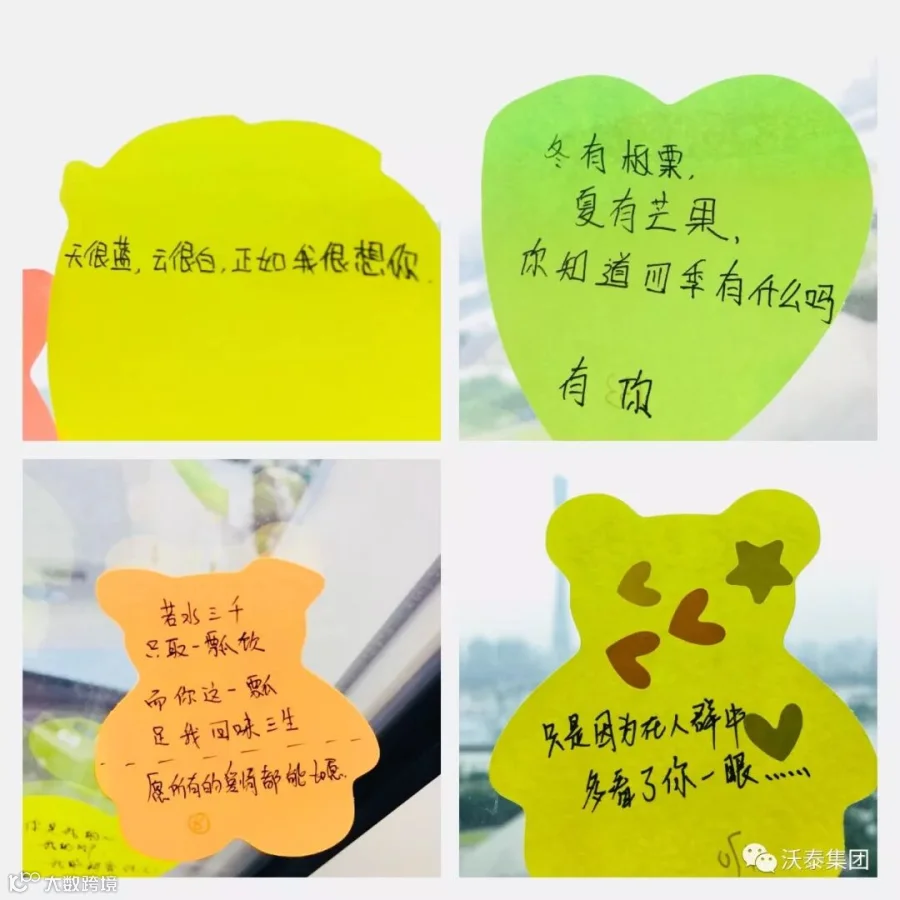 天很蓝，云很白，正如我很想你.
冬有板栗，
夏有芒果，
你知道四季有什么吗
有你
若水三千
只取一瓢饮
而你这一瓢
足我回味三生
愿所有的爱情都能如愿.
只是因为在人群中
多看了你一眼……
沃泰集团
大数跨境